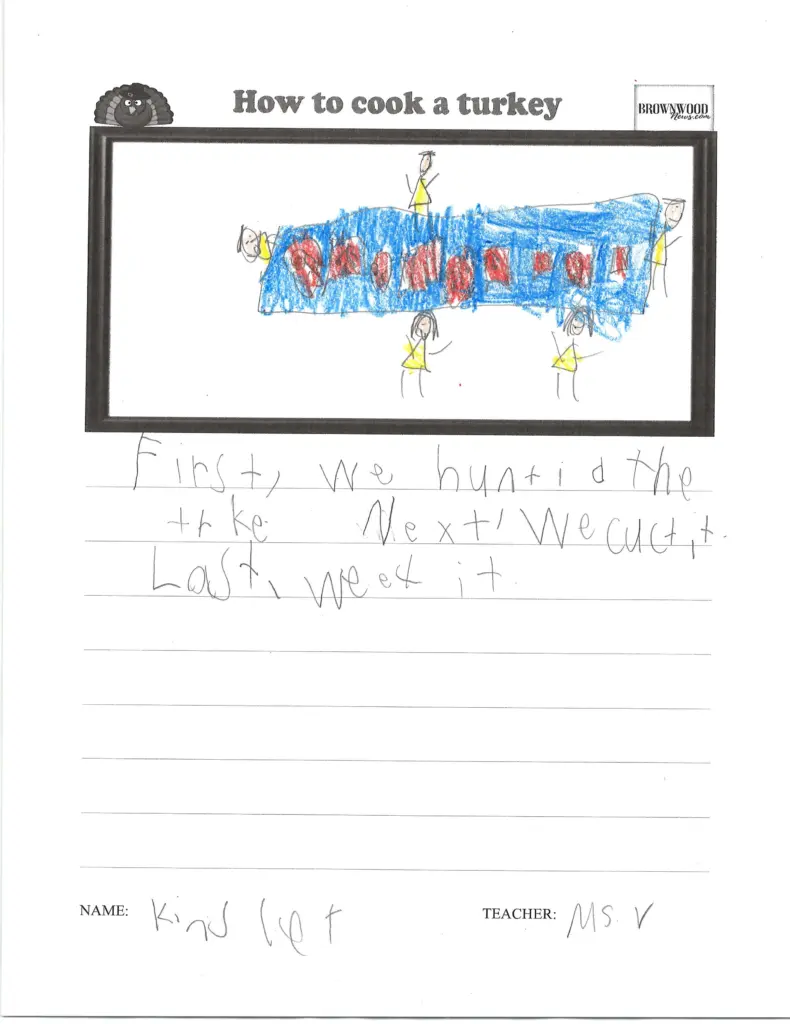 How to cook a turkey
BROWNWOOD
News.com
First, we huntid the
trke Next, We cuct it.
Last, we eet it.
NAME:
TEACHER: Ms. V